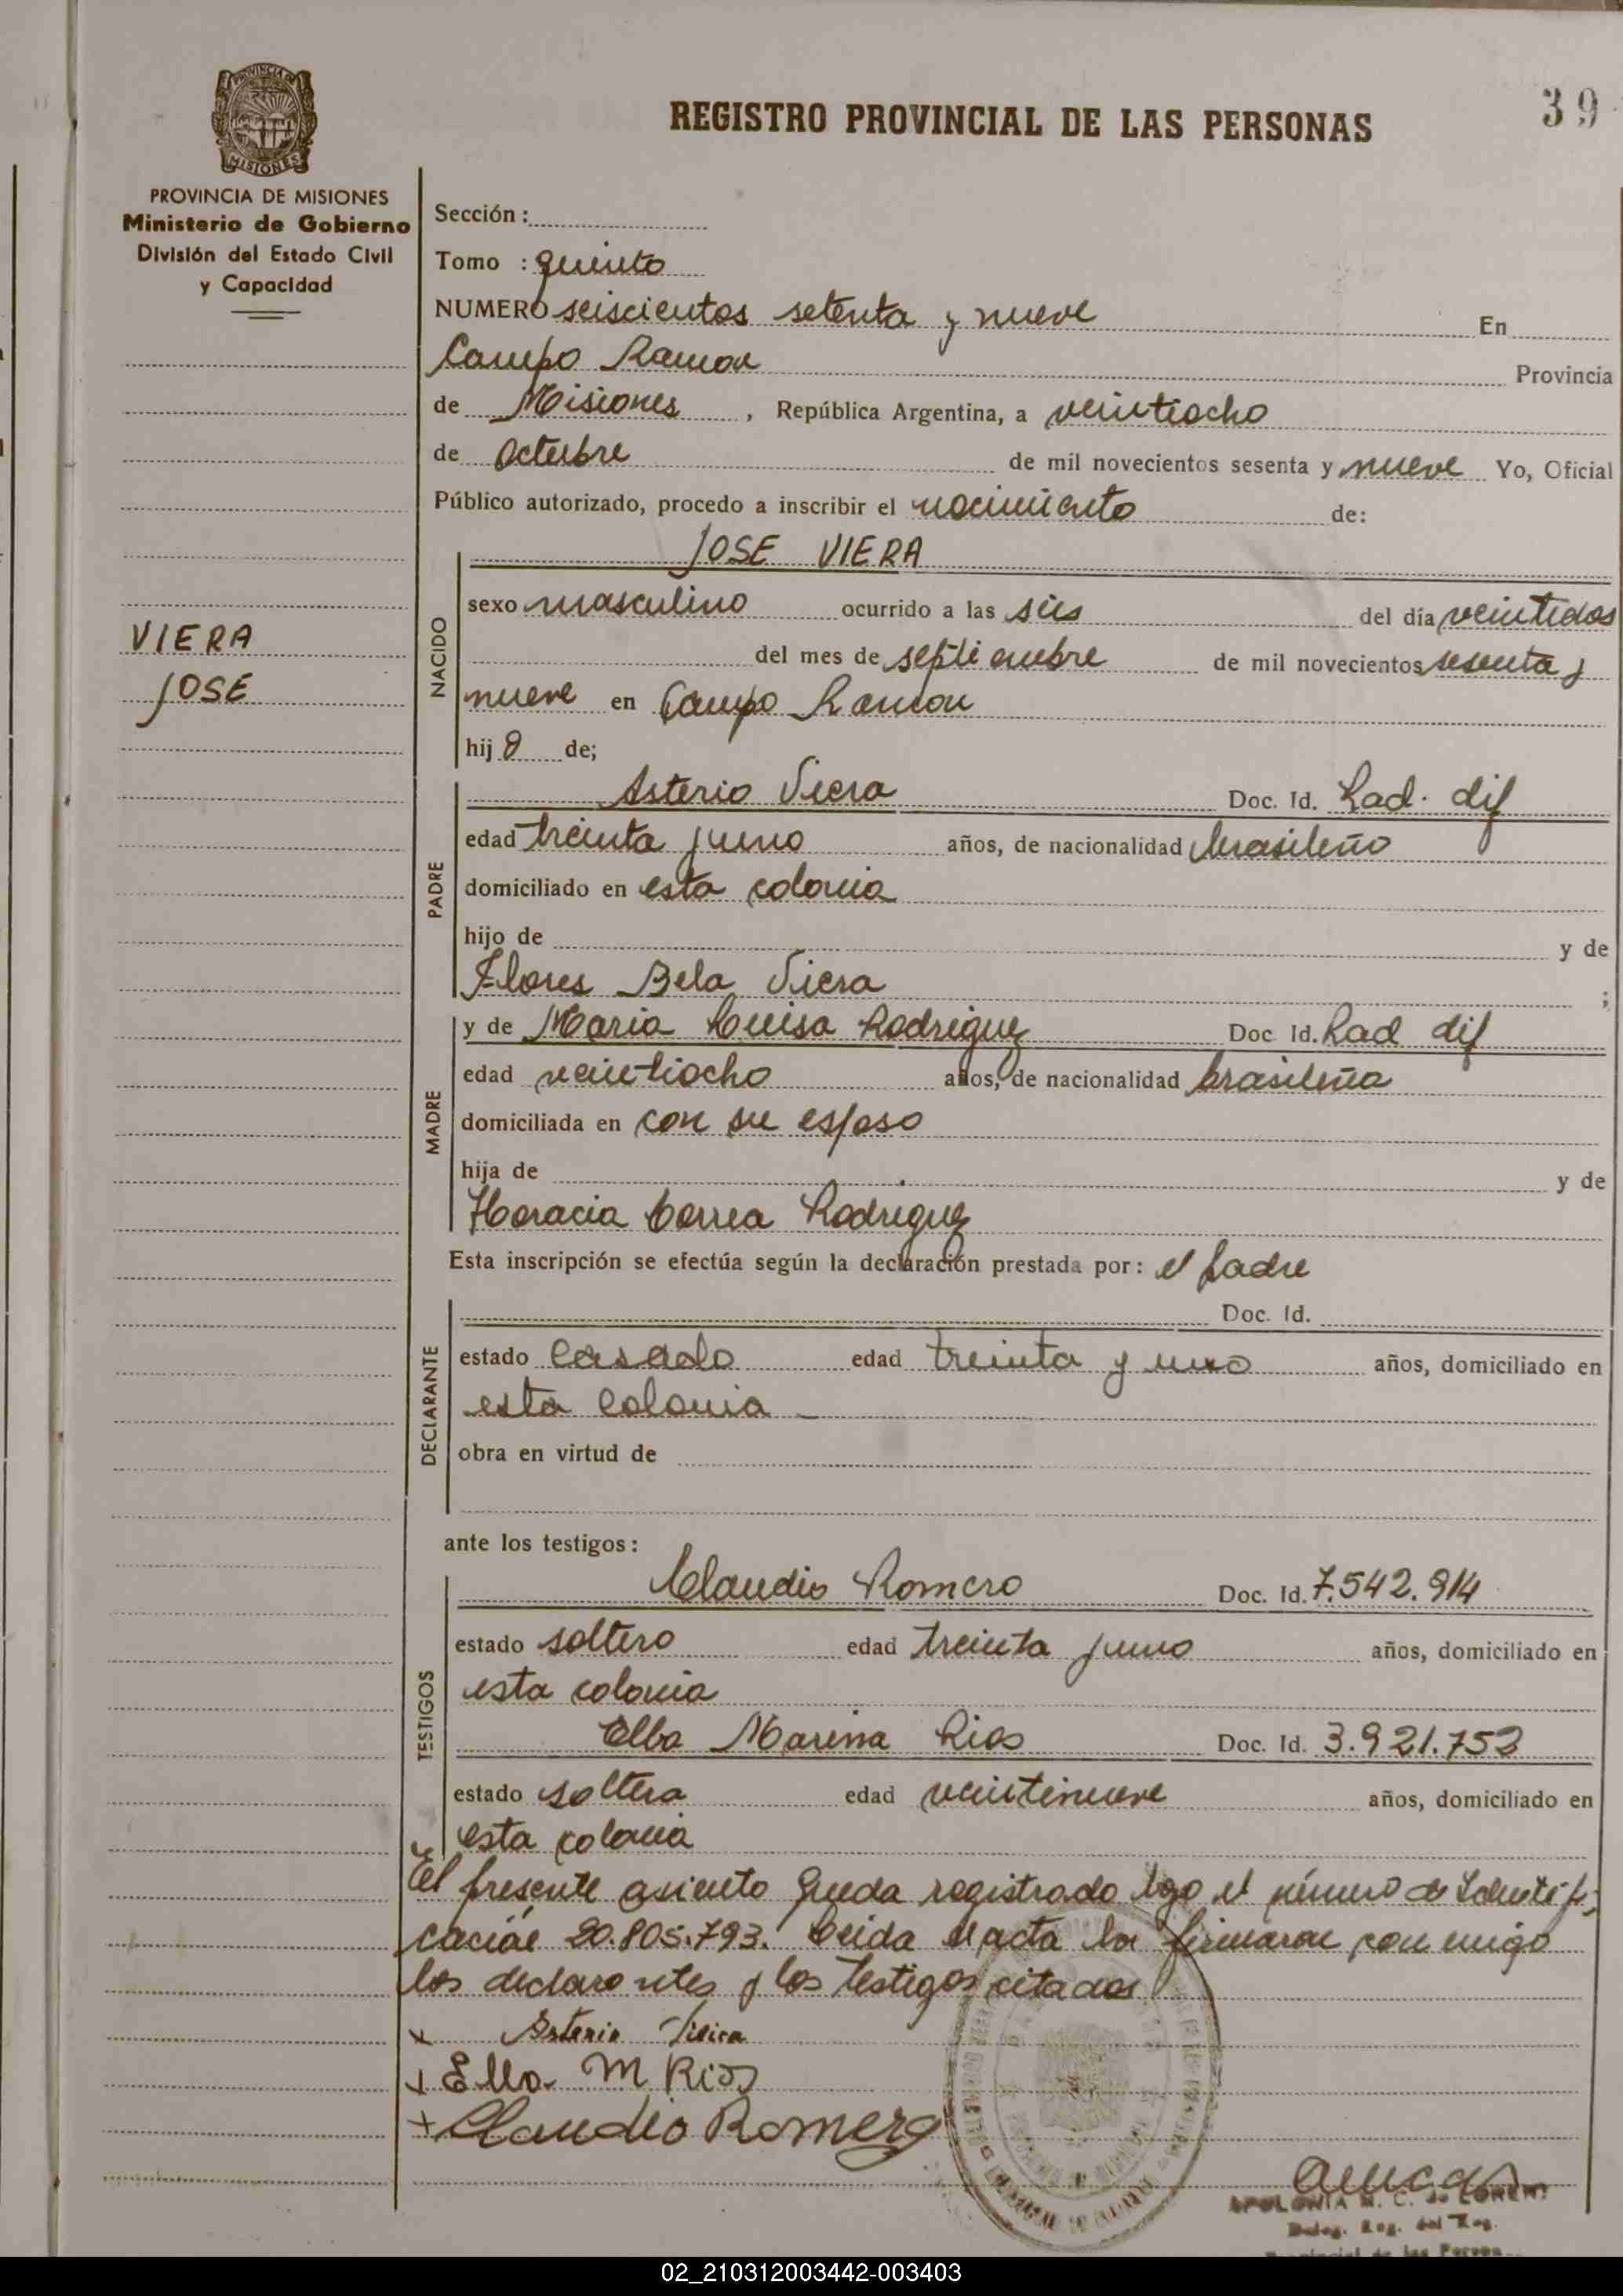 39
REGISTRO PROVINCIAL DE LAS PERSONAS
PROVINCIA DE MISIONES
Ministerio de Gobierno
División del Estado Civil
y Capacidad
VIERA
JOSE
Sección:
Tomo : quinto
NUMERO seiscientos setenta y nueve En
Campo Ramon Provincia
de Misiones, República Argentina, a veintiocho
de Octubre de mil novecientos sesenta y nueve Yo, Oficial
Público autorizado, procedo a inscribir el nacimiento de:
NACIDO
JOSE VIERA
sexo masculino ocurrido a las seis del día veintidos
del mes de septiembre de mil novecientos sesenta y
nueve en Campo Ramon
hijo de;
PADRE
Asterio Viera Doc. Id. Rad. dif
edad treinta y uno años, de nacionalidad brasileño
domiciliado en esta colonia
hijo de y de
Flores Bela Viera ;
MADRE
y de Maria Luisa Rodriguez Doc Id. Rad dif
edad veintiocho años, de nacionalidad brasileña
domiciliada en con su esposo
hija de y de
Horacia Correa Rodriguez
Esta inscripción se efectúa según la declaración prestada por: el padre
DECLARANTE
Doc. Id.
estado casado edad treinta y uno años, domiciliado en
esta colonia -
obra en virtud de
ante los testigos:
TESTIGOS
Claudio Romero Doc. Id. 7.542.914
estado soltero edad treinta y uno años, domiciliado en
esta colonia
Elba Marina Rios Doc. Id. 3.921.752
estado soltera edad veintinueve años, domiciliado en
esta colonia
El presente asiento queda registrado bajo el número de Identifi-
cación 20.805.793. Leida el acta la firmaron con migo
los declarantes y los testigos citados
x Asterio Viera
x Elba M Rios
x Claudio Romero
APOLONIA N. C. de
Deleg. Reg. del Reg.
Provincial de las Person
02_210312003442-003403